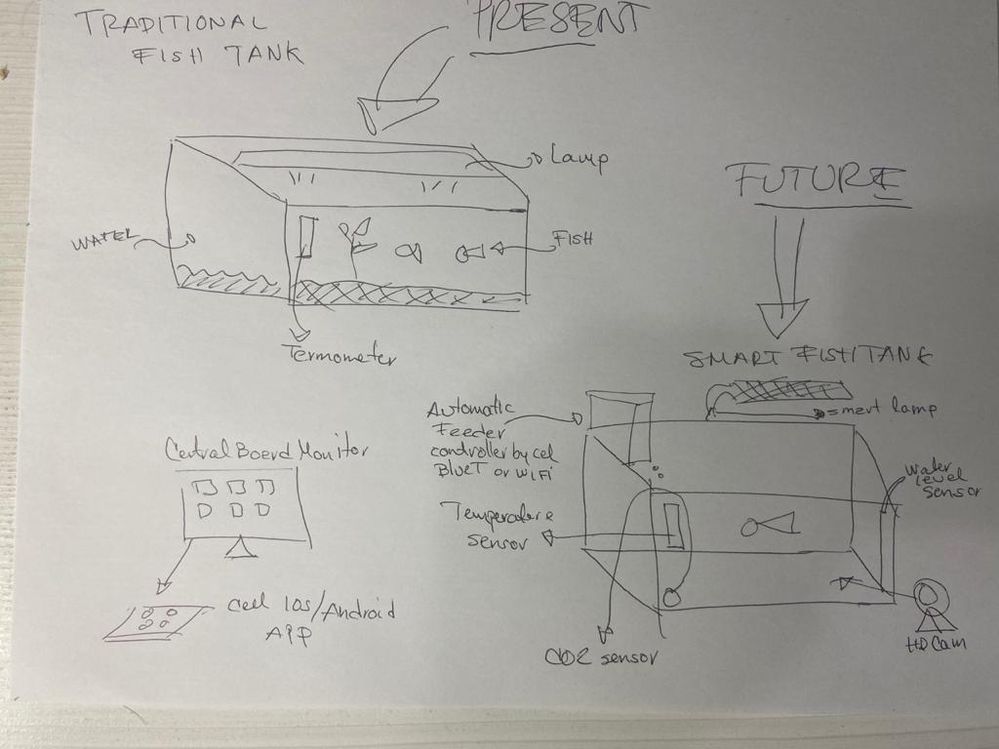 TRADITIONAL
FISH TANK
PRESENT
Lamp
WATER
FISH
Termometer
FUTURE
SMART FISH TANK
Automatic
Feeder
controller by cel
BlueT or wiFi
smart lamp
water
level
sensor
Temperature
sensor
CO2 sensor
HD Cam
Central Board Monitor
Cell IOS/Android
APP